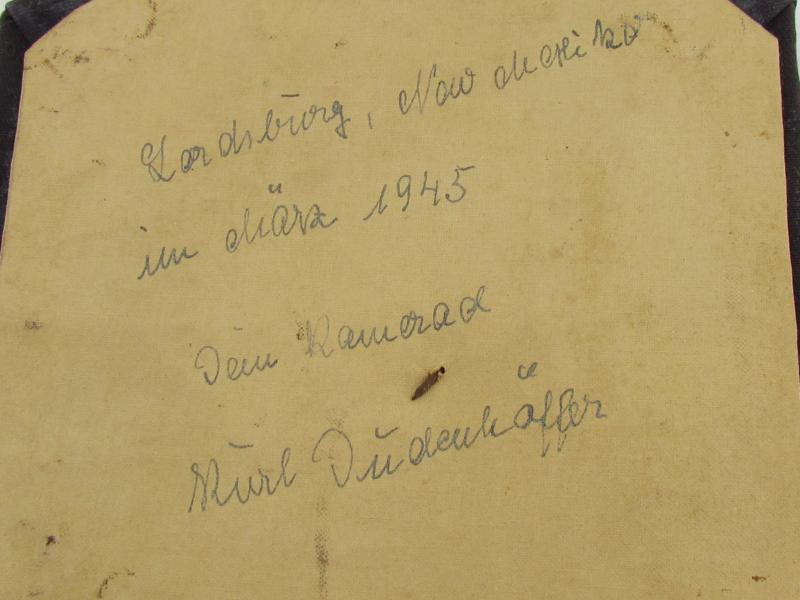 Lordsburg, New Mexiko
im März 1945
Dein Kamerad
Kurt Dudenhöffer